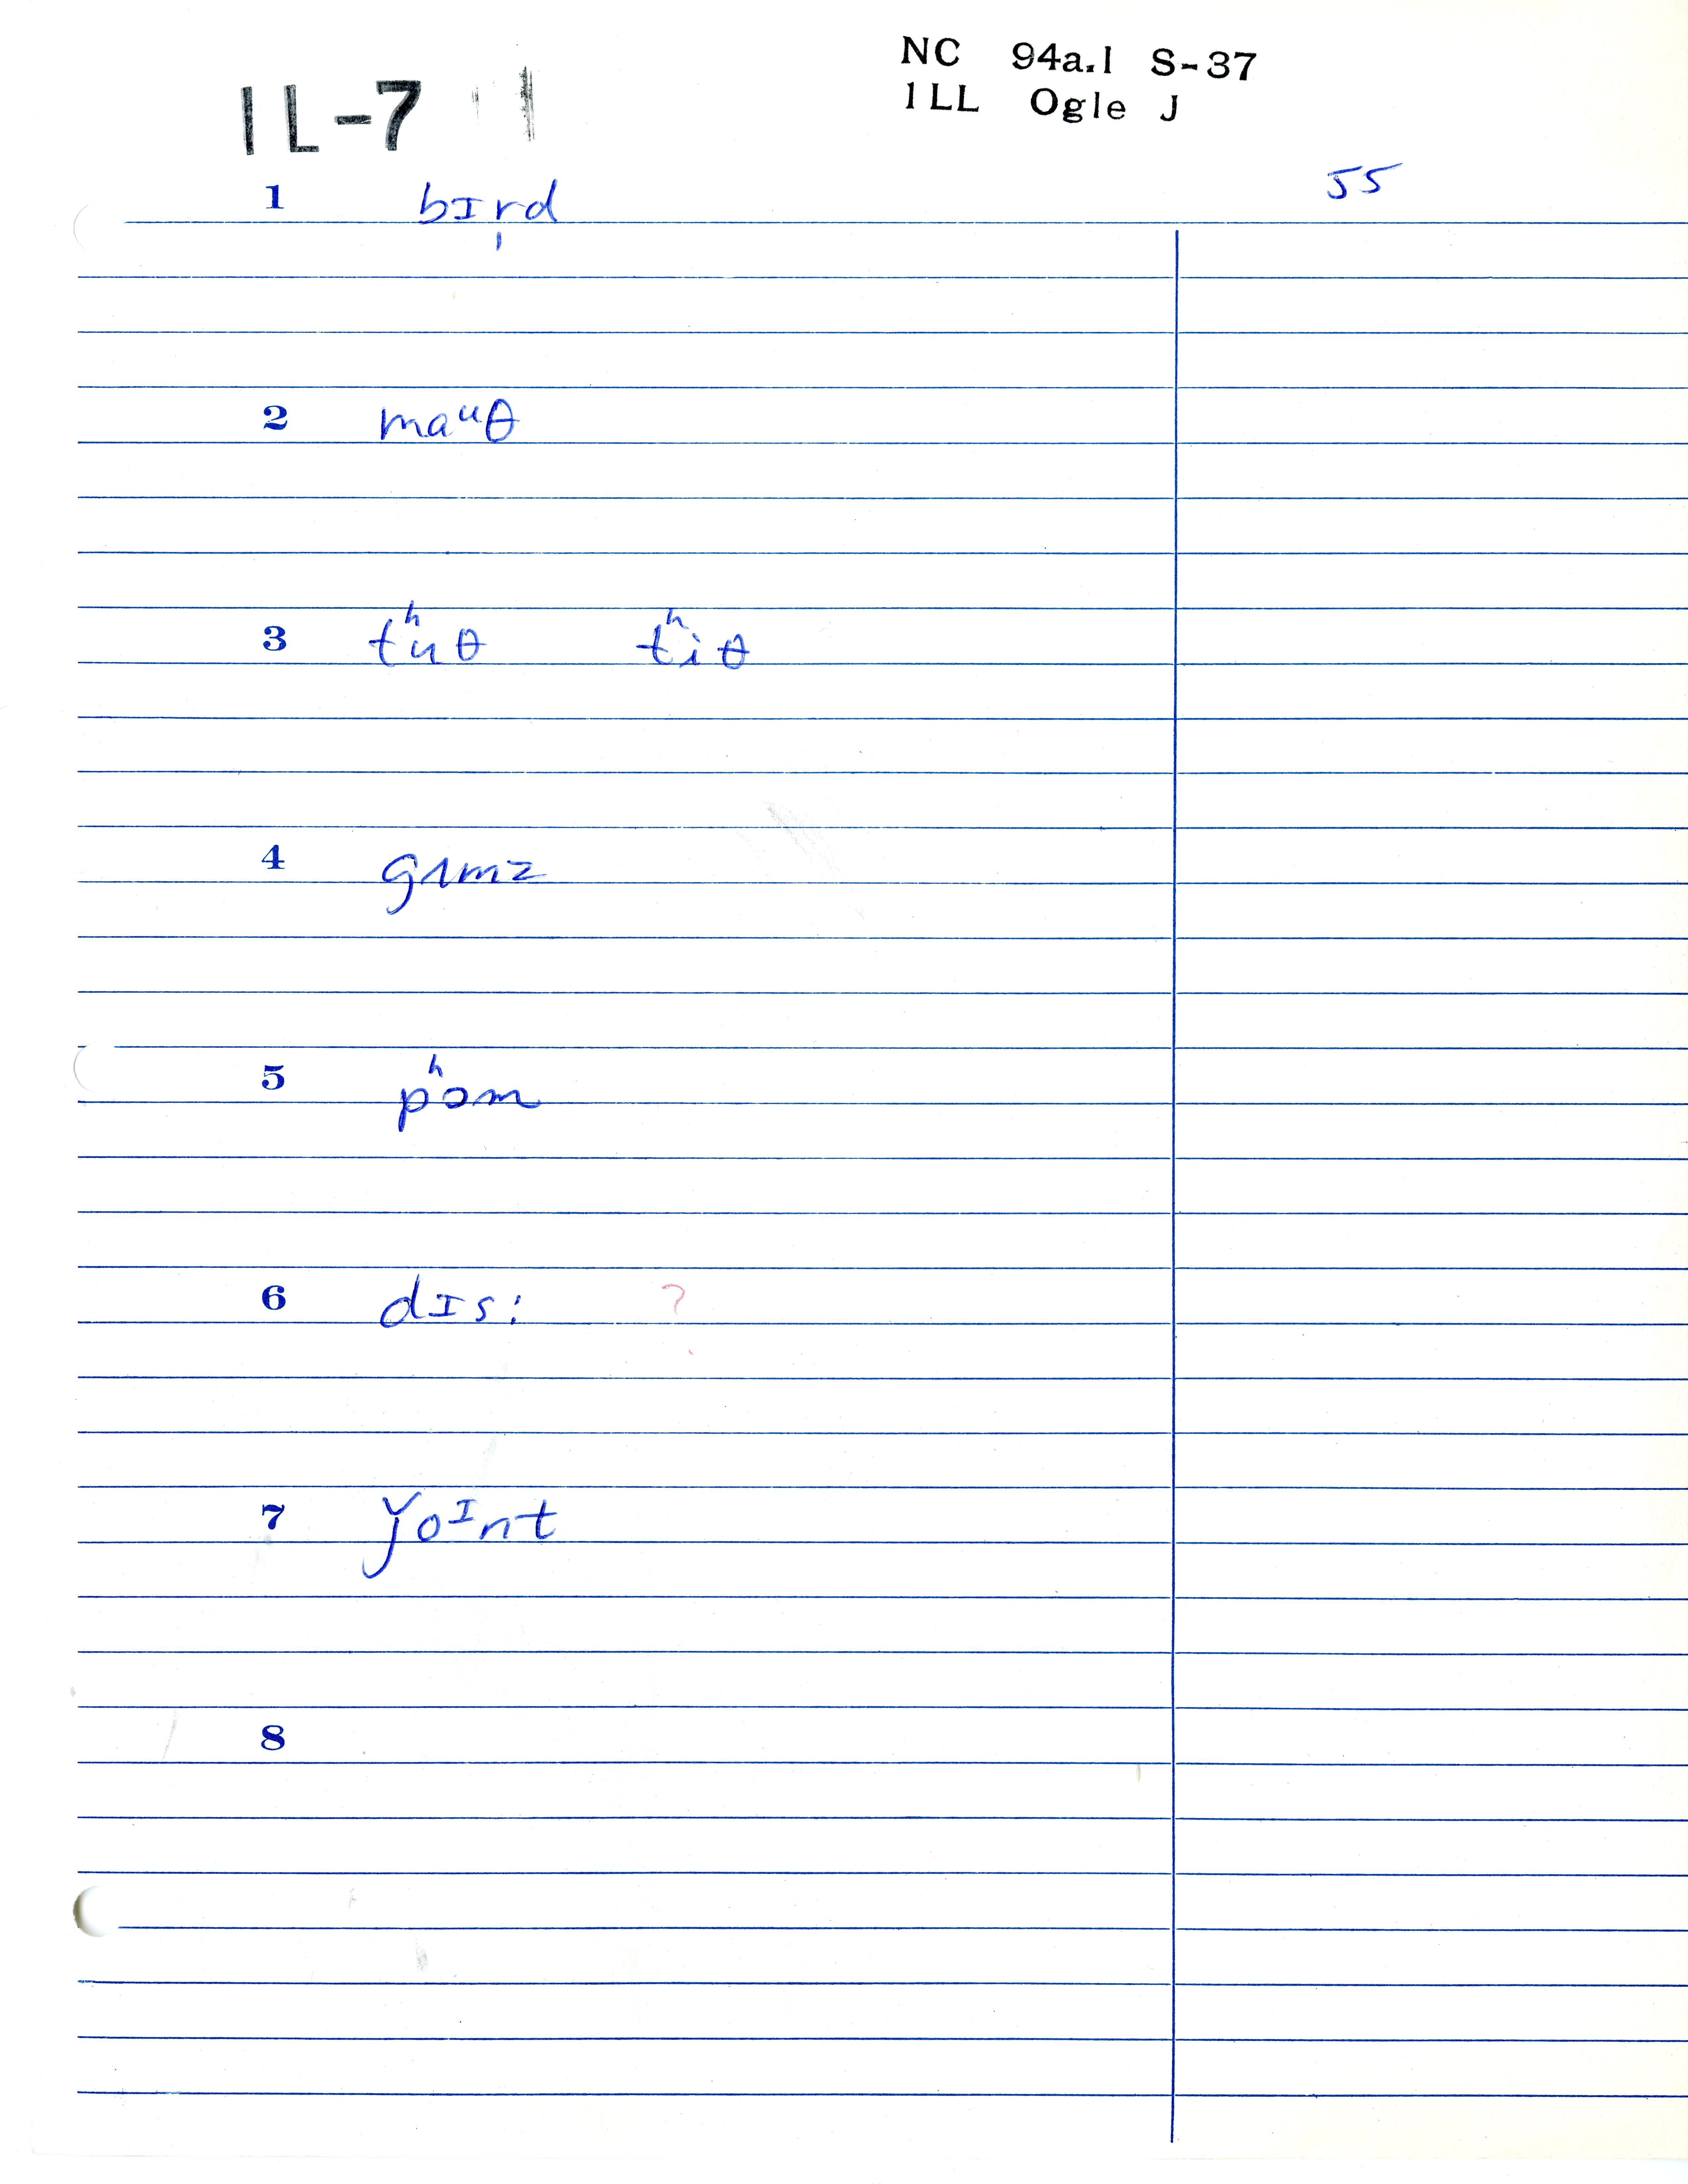 NC 94a.1 S-37
ILL Ogle J
IL-7
55
1 bɪr̩d
2 maᵘθ
3 tʰuθ tʰiθ
4 gʌmz
5 pʰɔm
6 dɪs: ?
7 ǰoᴵnt
8